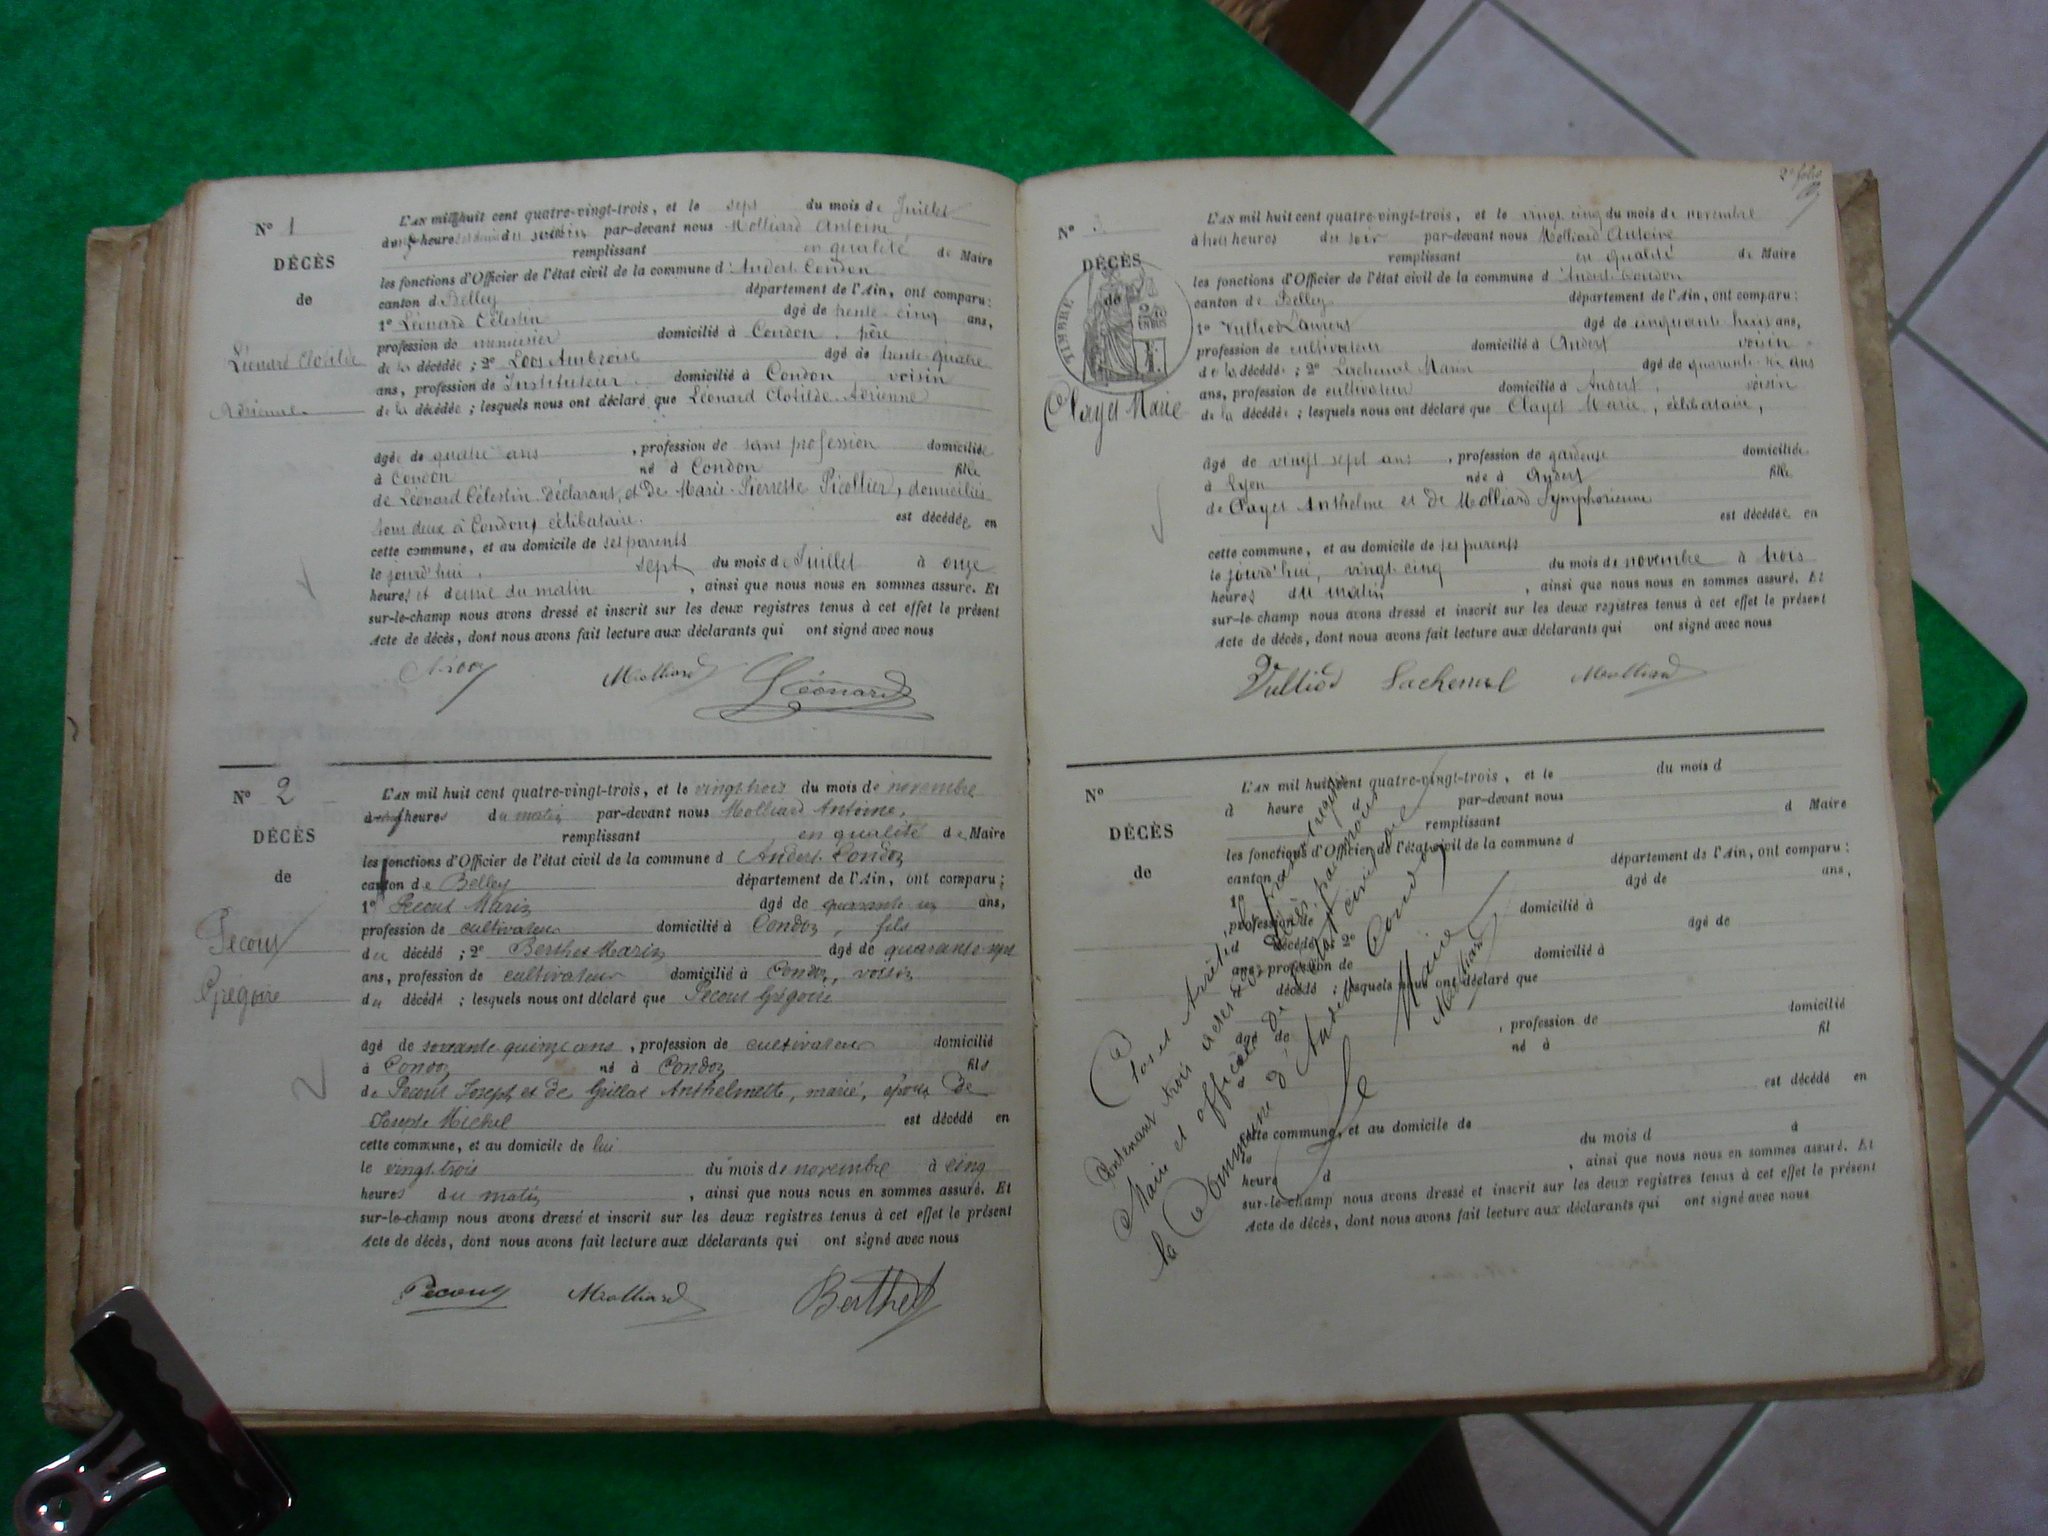 N° 1
DÉCÈS
de
Léonard Clotilde
Adrienne
L'AN mil huit cent quatre-vingt-trois, et le sept du mois de Juillet
heure du par-devant nous Molliard Antoine
remplissant en qualité de Maire
les fonctions d'Officier de l'état civil de la commune d'Andert-Condon
canton de Belley département de l'Ain, ont comparu :
1° Léonard Célestin âgé de trente-cinq ans,
profession de menuisier domicilié à Condon, père
de la décédée ; 2° Loos Ambroise âgé de trente-quatre
ans, profession de Instituteur domicilié à Condon voisin
de la décédée ; lesquels nous ont déclaré que Léonard Clotilde-Adrienne
âgée de quatre ans, profession de sans profession domiciliée
à Condon né à Condon fille
de Léonard Célestin déclarant, et de Marie-Pierrette Picollier, domiciliés
tous deux à Condon, célibataire. est décédée en
cette commune, et au domicile de ses parents
le jourd'hui, sept du mois de Juillet à onze
heures et demie du matin, ainsi que nous nous en sommes assuré. Et
sur-le-champ nous avons dressé et inscrit sur les deux registres tenus à cet effet le présent
Acte de décès, dont nous avons fait lecture aux déclarants qui ont signé avec nous
Molliard Léonard
N° 2
DÉCÈS
de
Pecout
Grégoire
L'AN mil huit cent quatre-vingt-trois, et le vingt-trois du mois de novembre
à heures du matin par-devant nous Molliard Antoine,
remplissant en qualité de Maire
les fonctions d'Officier de l'état civil de la commune d Andert-Condon
canton de Belley département de l'Ain, ont comparu ;
1° Pecout Marin âgé de quarante un ans,
profession de cultivateur domicilié à Condon, fils
du décédé ; 2° Berthet Marin âgé de quarante-sept
ans, profession de cultivateur domicilié à Condon, voisin
du décédé ; lesquels nous ont déclaré que Pecout Grégoire
âgé de soixante quinze ans, profession de cultivateur domicilié
à Condon né à Condon fils
de Pecout Joseph et de Grillat Anthelmette, marié, époux de
Josepte Michel est décédé en
cette commune, et au domicile de lui
le vingt-trois du mois de novembre à cinq
heures du matin, ainsi que nous nous en sommes assuré. Et
sur-le-champ nous avons dressé et inscrit sur les deux registres tenus à cet effet le présent
Acte de décès, dont nous avons fait lecture aux déclarants qui ont signé avec nous
Pecout Molliard Berthet
2e folio
N° 3
DÉCÈS
de
TIMBRE
Clayet Marie
L'AN mil huit cent quatre-vingt-trois, et le vingt cinq du mois de novembre
à huit heures du soir par-devant nous Molliard Antoine
remplissant en qualité de Maire
les fonctions d'Officier de l'état civil de la commune d'Andert-Condon
canton de Belley département de l'Ain, ont comparu :
1° Vulliod Laurent âgé de cinquante huit ans,
profession de cultivateur domicilié à Andert voisin
de la décédée ; 2° Lachenal Marin âgé de quarante-six ans
ans, profession de cultivateur domicilié à Andert, voisin
de la décédée ; lesquels nous ont déclaré que Clayet Marie, célibataire,
âgé de vingt sept ans, profession de gardeuse domiciliée
à Lyon née à Andert fille
de Clayet Anthelme et de Molliard Symphorienne
est décédée en
cette commune, et au domicile de ses parents
le jourd'hui, vingt-cinq du mois de novembre à trois
heures du matin, ainsi que nous nous en sommes assuré. Et
sur-le-champ nous avons dressé et inscrit sur les deux registres tenus à cet effet le présent
Acte de décès, dont nous avons fait lecture aux déclarants qui ont signé avec nous
Vulliod Lachenal Molliard
N°
DÉCÈS
de
L'AN mil huit cent quatre-vingt-trois, et le du mois d
à heure d par-devant nous
remplissant d Maire
les fonctions d'Officier de l'état civil de la commune d
canton d département de l'Ain, ont comparu :
1° âgé de ans,
profession de domicilié à
d décédé ; 2° âgé de
ans, profession de domicilié à
d décédé ; lesquels nous ont déclaré que
âgé de, profession de domicilié
à né à fil
de
est décédé en
cette commune, et au domicile de
le du mois d à
heure d, ainsi que nous nous en sommes assuré. Et
sur-le-champ nous avons dressé et inscrit sur les deux registres tenus à cet effet le présent
Acte de décès, dont nous avons fait lecture aux déclarants qui ont signé avec nous
Clos et Arrêté le présent registre
Contenant trois actes de décès, par nous
Maire et officier de l'état civil de
la Commune d'Andert Condon
Le Maire
Molliard